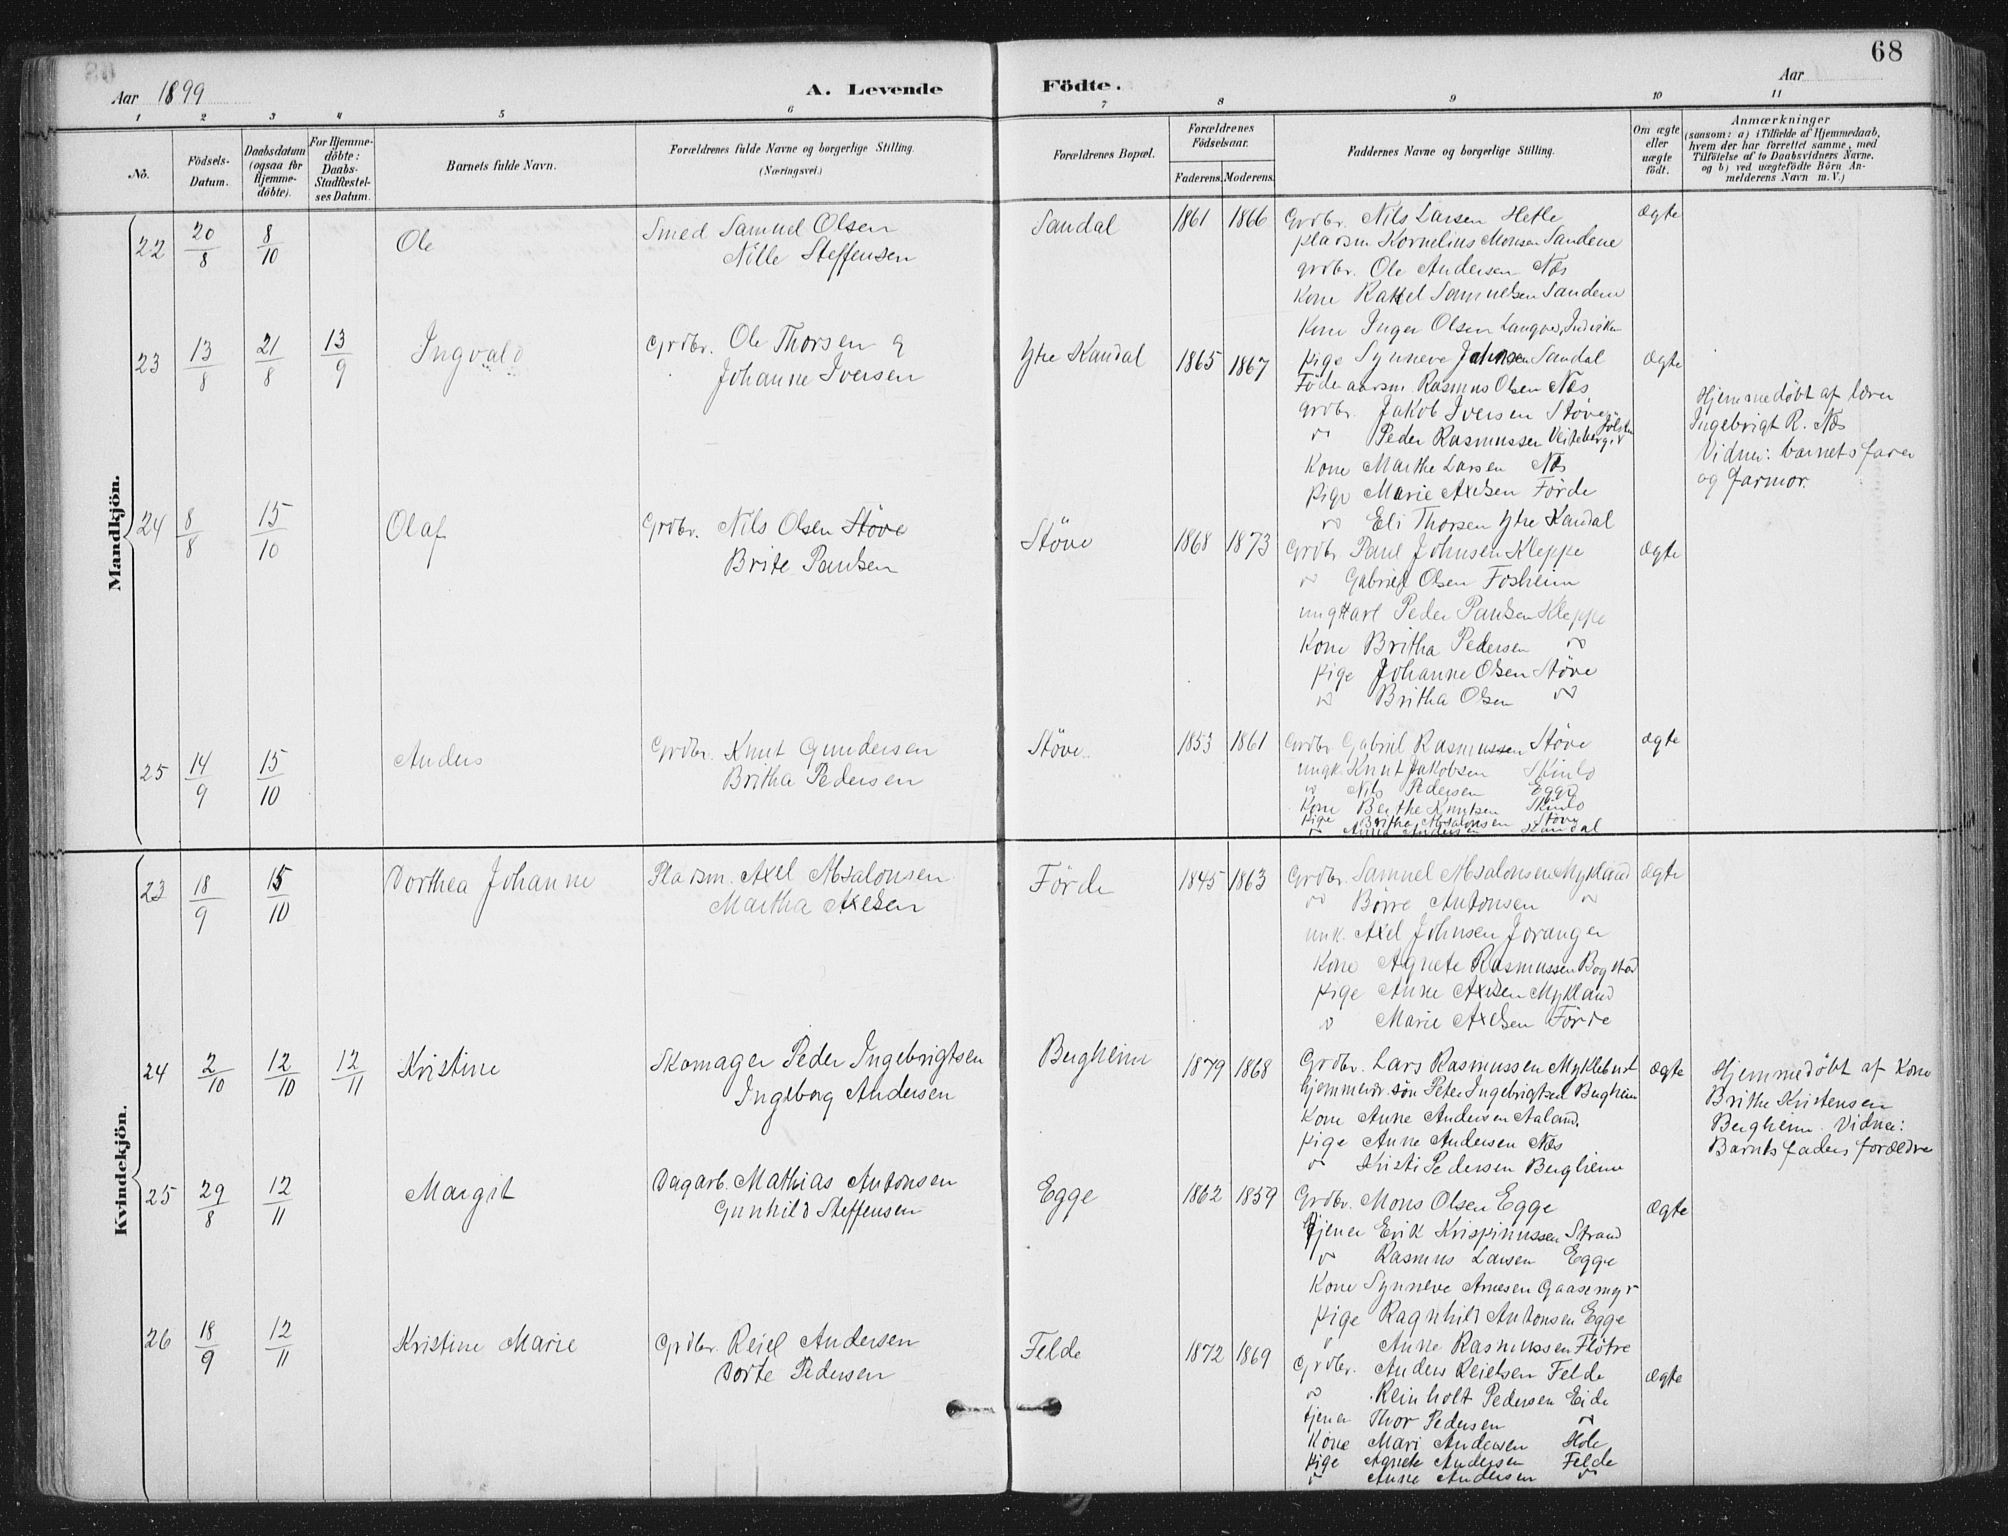 68
Aar 1899
A. Levende
Födte.
Aar
1 2 3 4 5 6 7 8 9 10 11
No.
Födsels-
Datum.
Daabsdatum
(ogsaa for
Hjemme-
döbte).
For Hjemme-
döbte:
Daabs-
Stadfæstel-
ses Datum.
Barnets fulde Navn.
Forældrenes fulde Navne og borgerlige Stilling.
(Næringsvei.)
Forældrenes Bopæl.
Forældrenes
Födselsaar.
Faderens.
Moderens.
Faddernes Navne og borgerlige Stilling.
Om ægte
eller
uægte
födt.
Anmærkninger
(saasom: a) i Tilfælde af Hjemmedaab,
hvem der har forrettet samme, med
Tilföielse af to Daabsvidners Navne,
og b) ved uægtefödte Börn An-
melderens Navn m. V.)
Mandkjön.
22 20/8 8/10 Ole
Smed Samuel Olsen
Nille Steffensen
Sandal 1861 1866
Grdbr. Nils Larsen Hetle
pladsm. Kornelius Monsen Sandene
grdbr. Ole Andersen Næs
Kone Rakel Samuelsen Sandene
Ægte
23 13/8 21/8 13/9 Ingvald
Grdbr. Ole Thorsen &
Johanne Iversen
Ytre Kandal 1865 1867
Kone Inger Olsen Langvei, Indviken
Pige Synneve Johnsen Sandal
Föderaarsm. Rasmus Olsen Næs
Grdbr. Jakob Iversen Støve
" Peder Rasmussen Veiteberg, Jølster
Kone Marthe Larsen Næs
Pige Marie Axelsen Förde
" Eli Thorsen Ytre Kandal
Ægte
Hjemmedøbt af lærer
Ingebrigt R. Næs
Vidner: barnets farer
og farmor.
24 8/8 15/10 Olaf
Grdbr. Nils Olsen Støve
Brite Paulsen
Støve 1868 1873
Grdbr Paul Johnsen Kleppe
" Gabriel Olsen Fosheim
ungkarl Peder Paulsen Kleppe
Kone Britha Pedersen "
Pige Johanne Olsen Støve
" Britha Olsen "
Ægte
25 14/9 15/10 Anders
Grdbr. Knut Gundersen
Britha Pedersen
Støve 1853 1861
Grdbr. Gabriel Rasmussen Støve
ungk. Knut Jakobsen Skinlo
" Nils Pedersen Egge
Kone Berthe Knutsen Skinlo
Pige Britha Absalonsen Støve
" Anna Andersen Kandal
Ægte
Kvindekjön.
23 18/9 15/10 Dorthea Johanne
Pladsm. Axel Absalonsen
Martha Axelsen
Förde 1845 1863
Grdbr. Samuel Absalonsen Mykland
" Børre Antonsen "
unk. Axel Johnsen Joranger
Kone Agnete Rasmussen Bogstad
Pige Anne Axelsen Mykland
" Marie Axelsen Förde
Ægte
24 2/10 12/10 12/11 Kristine
Skomager Peder Ingebrigtsen
Ingeborg Andersen
Bergheim 1879 1868
Grdbr. Lars Rasmussen Myklebust
hjemmevr. søn Peter Ingebrigtsen Bergheim
Kone Anne Andersen Aaland.
Pige Anne Andersen Næs
" Kristi Pedersen Bergheim
Ægte
Hjemmedøbt af Kone
Brithe Kristensen
Bergheim. Vidner:
Barnets faders forældre
25 29/8 12/11 Margit
Dagarb. Mathias Antonsen
Gunhild Steffensen
Egge 1862 1859
Grdbr. Mons Olsen Egge
Tjener Erik Krispinussen Strand
" Rasmus Larsen Egge
Kone Synneve Arnesen Gaasemyr
Pige Ragnhild Antonsen Egge
" Anne Rasmussen Flötre
Ægte
26 18/9 12/11 Kristine Marie
Grdbr. Reiel Andersen
Dorte Pedersen
Felde 1872 1869
Grdbr. Anders Reielsen Felde
" Reinholt Pedersen Eide
tjener Thor Pedersen "
Kone Mari Andersen Hole
Pige Agnete Andersen Felde
" Anne Andersen "
Ægte